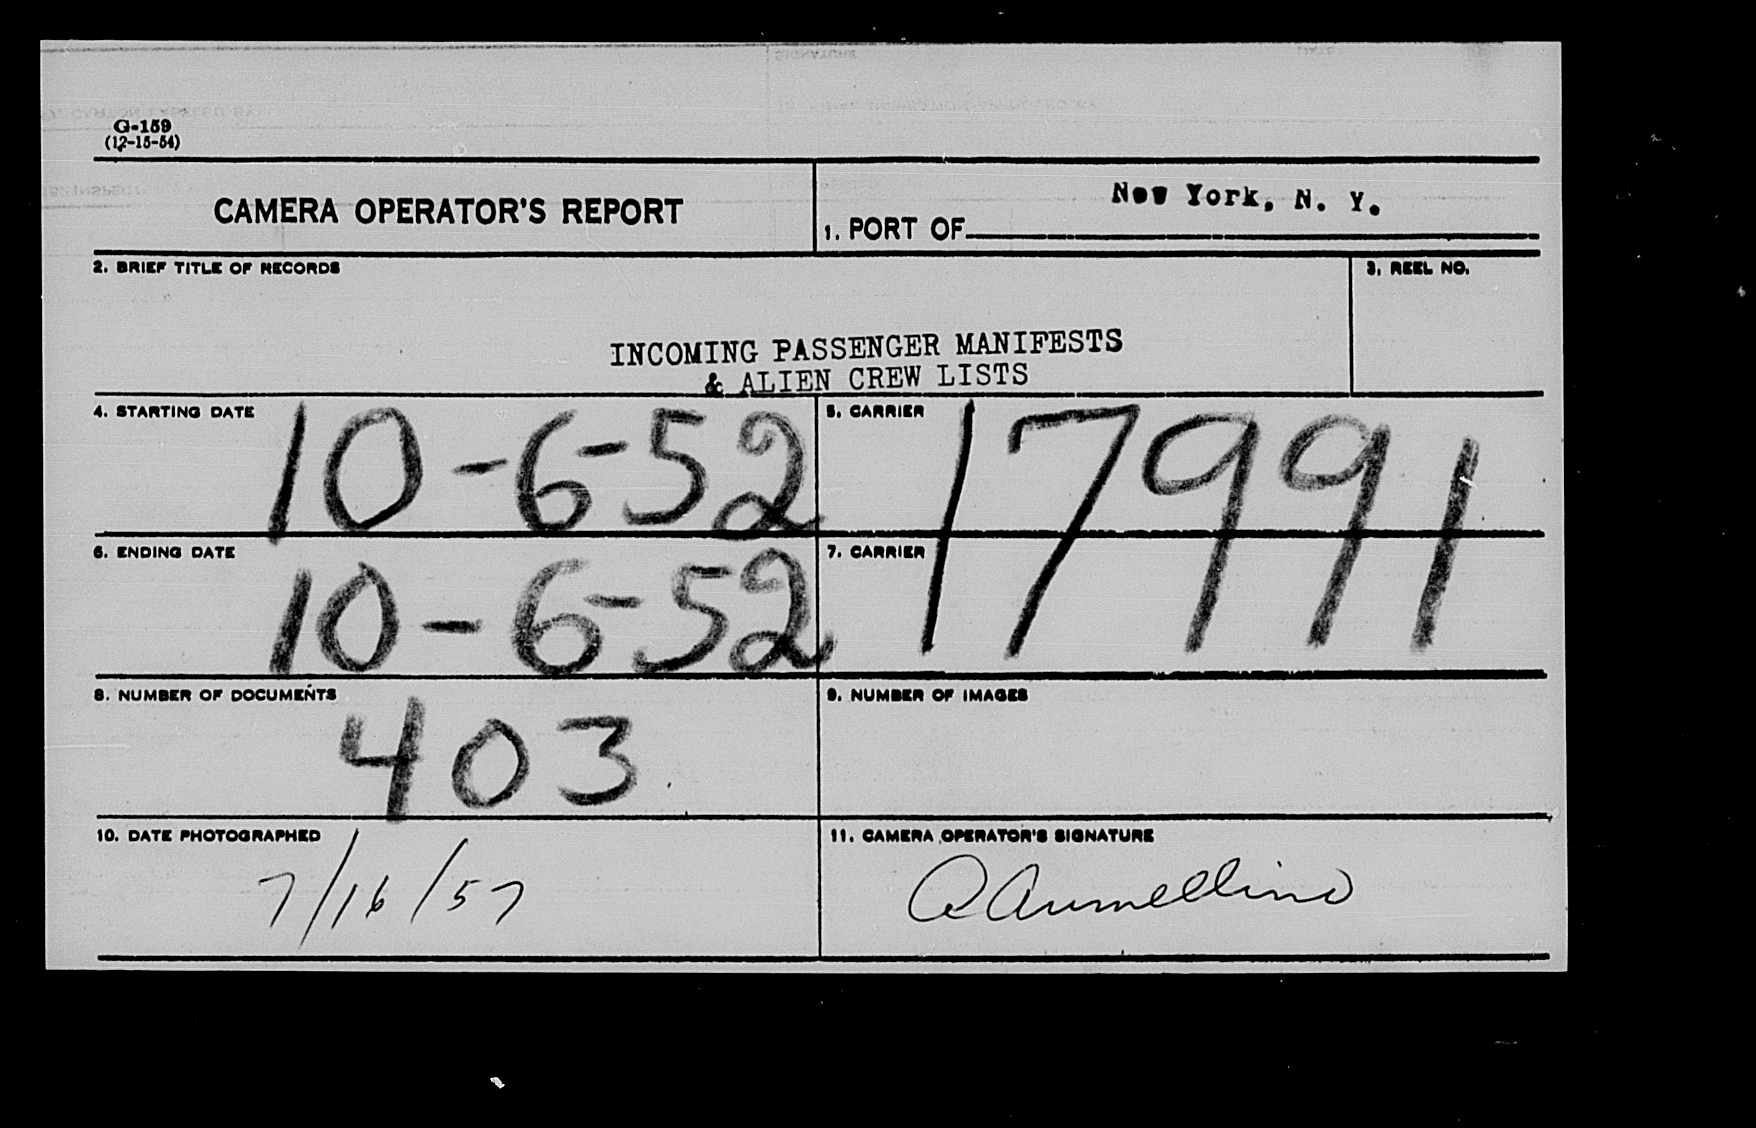 G-159
(12-15-54)
CAMERA OPERATOR'S REPORT
New York, N. Y.
1. PORT OF
2. BRIEF TITLE OF RECORDS
3. REEL NO.
INCOMING PASSENGER MANIFESTS
& ALIEN CREW LISTS
4. STARTING DATE
10-6-52
5. CARRIER
17991
6. ENDING DATE
10-6-52
7. CARRIER
8. NUMBER OF DOCUMENTS
403
9. NUMBER OF IMAGES
10. DATE PHOTOGRAPHED
7/16/57
11. CAMERA OPERATOR'S SIGNATURE